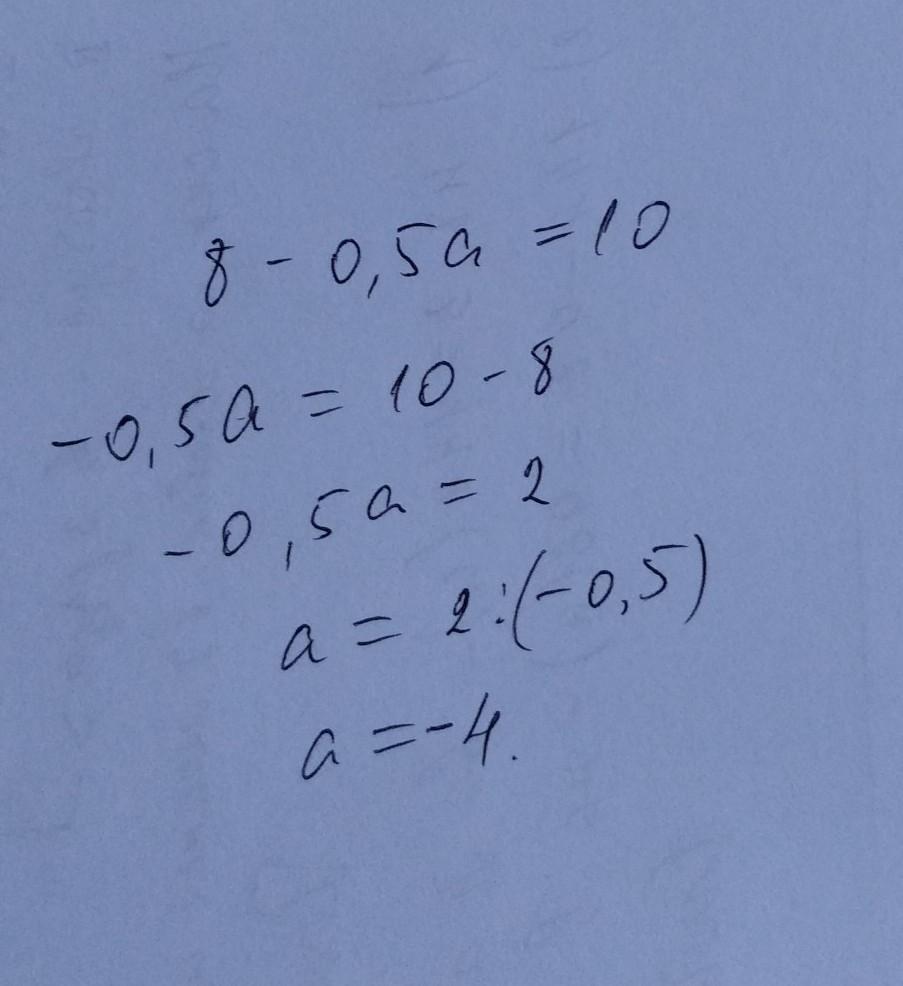 8 - 0,5a = 10
-0,5a = 10 - 8
-0,5a = 2
a = 2:(-0,5)
a = -4.